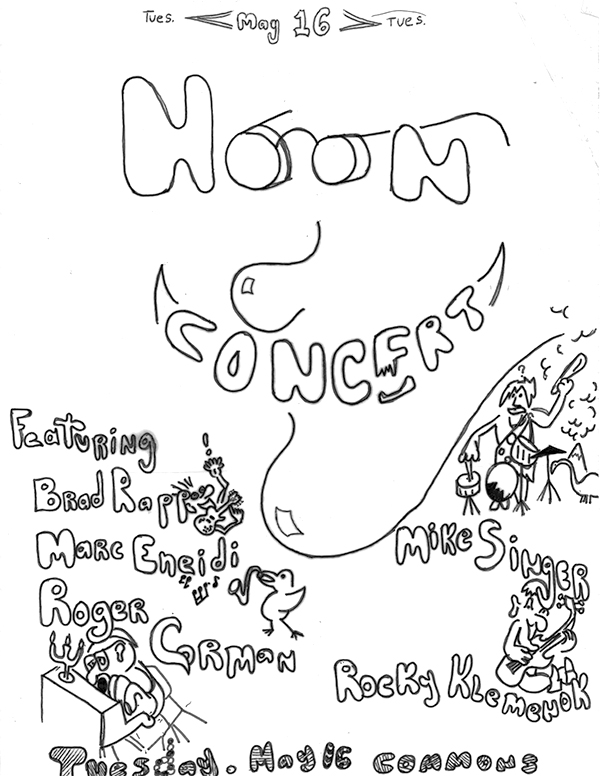 Tues. May 16 Tues.
Noon
Concert
Featuring
Brad Rapp
Marc Eneidi
Roger Corman
Mike Singer
Rocky Klemenok
Tuesday. May 16 Commons